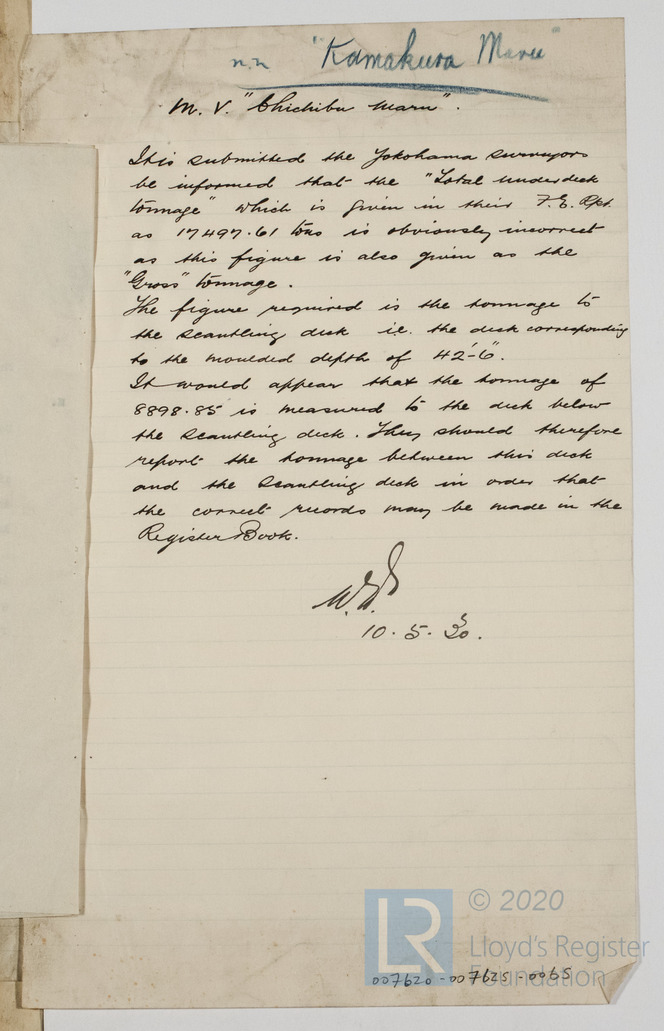 n.n "Kamakura Maru"
M.V. "Chichibu Maru".
It is submitted the Yokohama surveyors
be informed that the "Total underdeck
tonnage" which is given in their F.E. Rpt.
as 17497.61 tons is obviously incorrect
as this figure is also given as the
"Gross" tonnage.
The figure required is the tonnage to
the scantling deck i.e. the deck corresponding
to the moulded depth of 42'-6".
It would appear that the tonnage of
8898.85 is measured to the deck below
the scantling deck. They should therefore
report the tonnage between this deck
and the scantling deck in order that
the correct records may be made in the
Register Book.
10.5.30.
LR
© 2020
Lloyd's Register
Foundation
007620-007625-0065